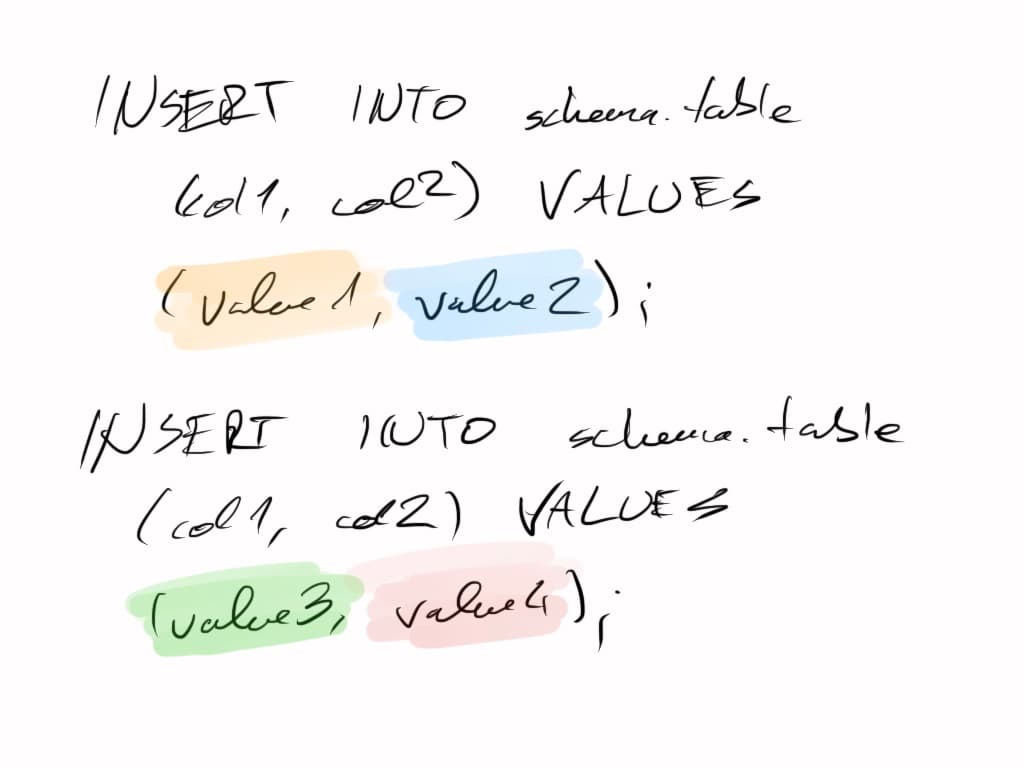 INSERT INTO schema.table
(col1, col2) VALUES
(value1, value2);
INSERT INTO schema.table
(col1, col2) VALUES
(value3, value4);